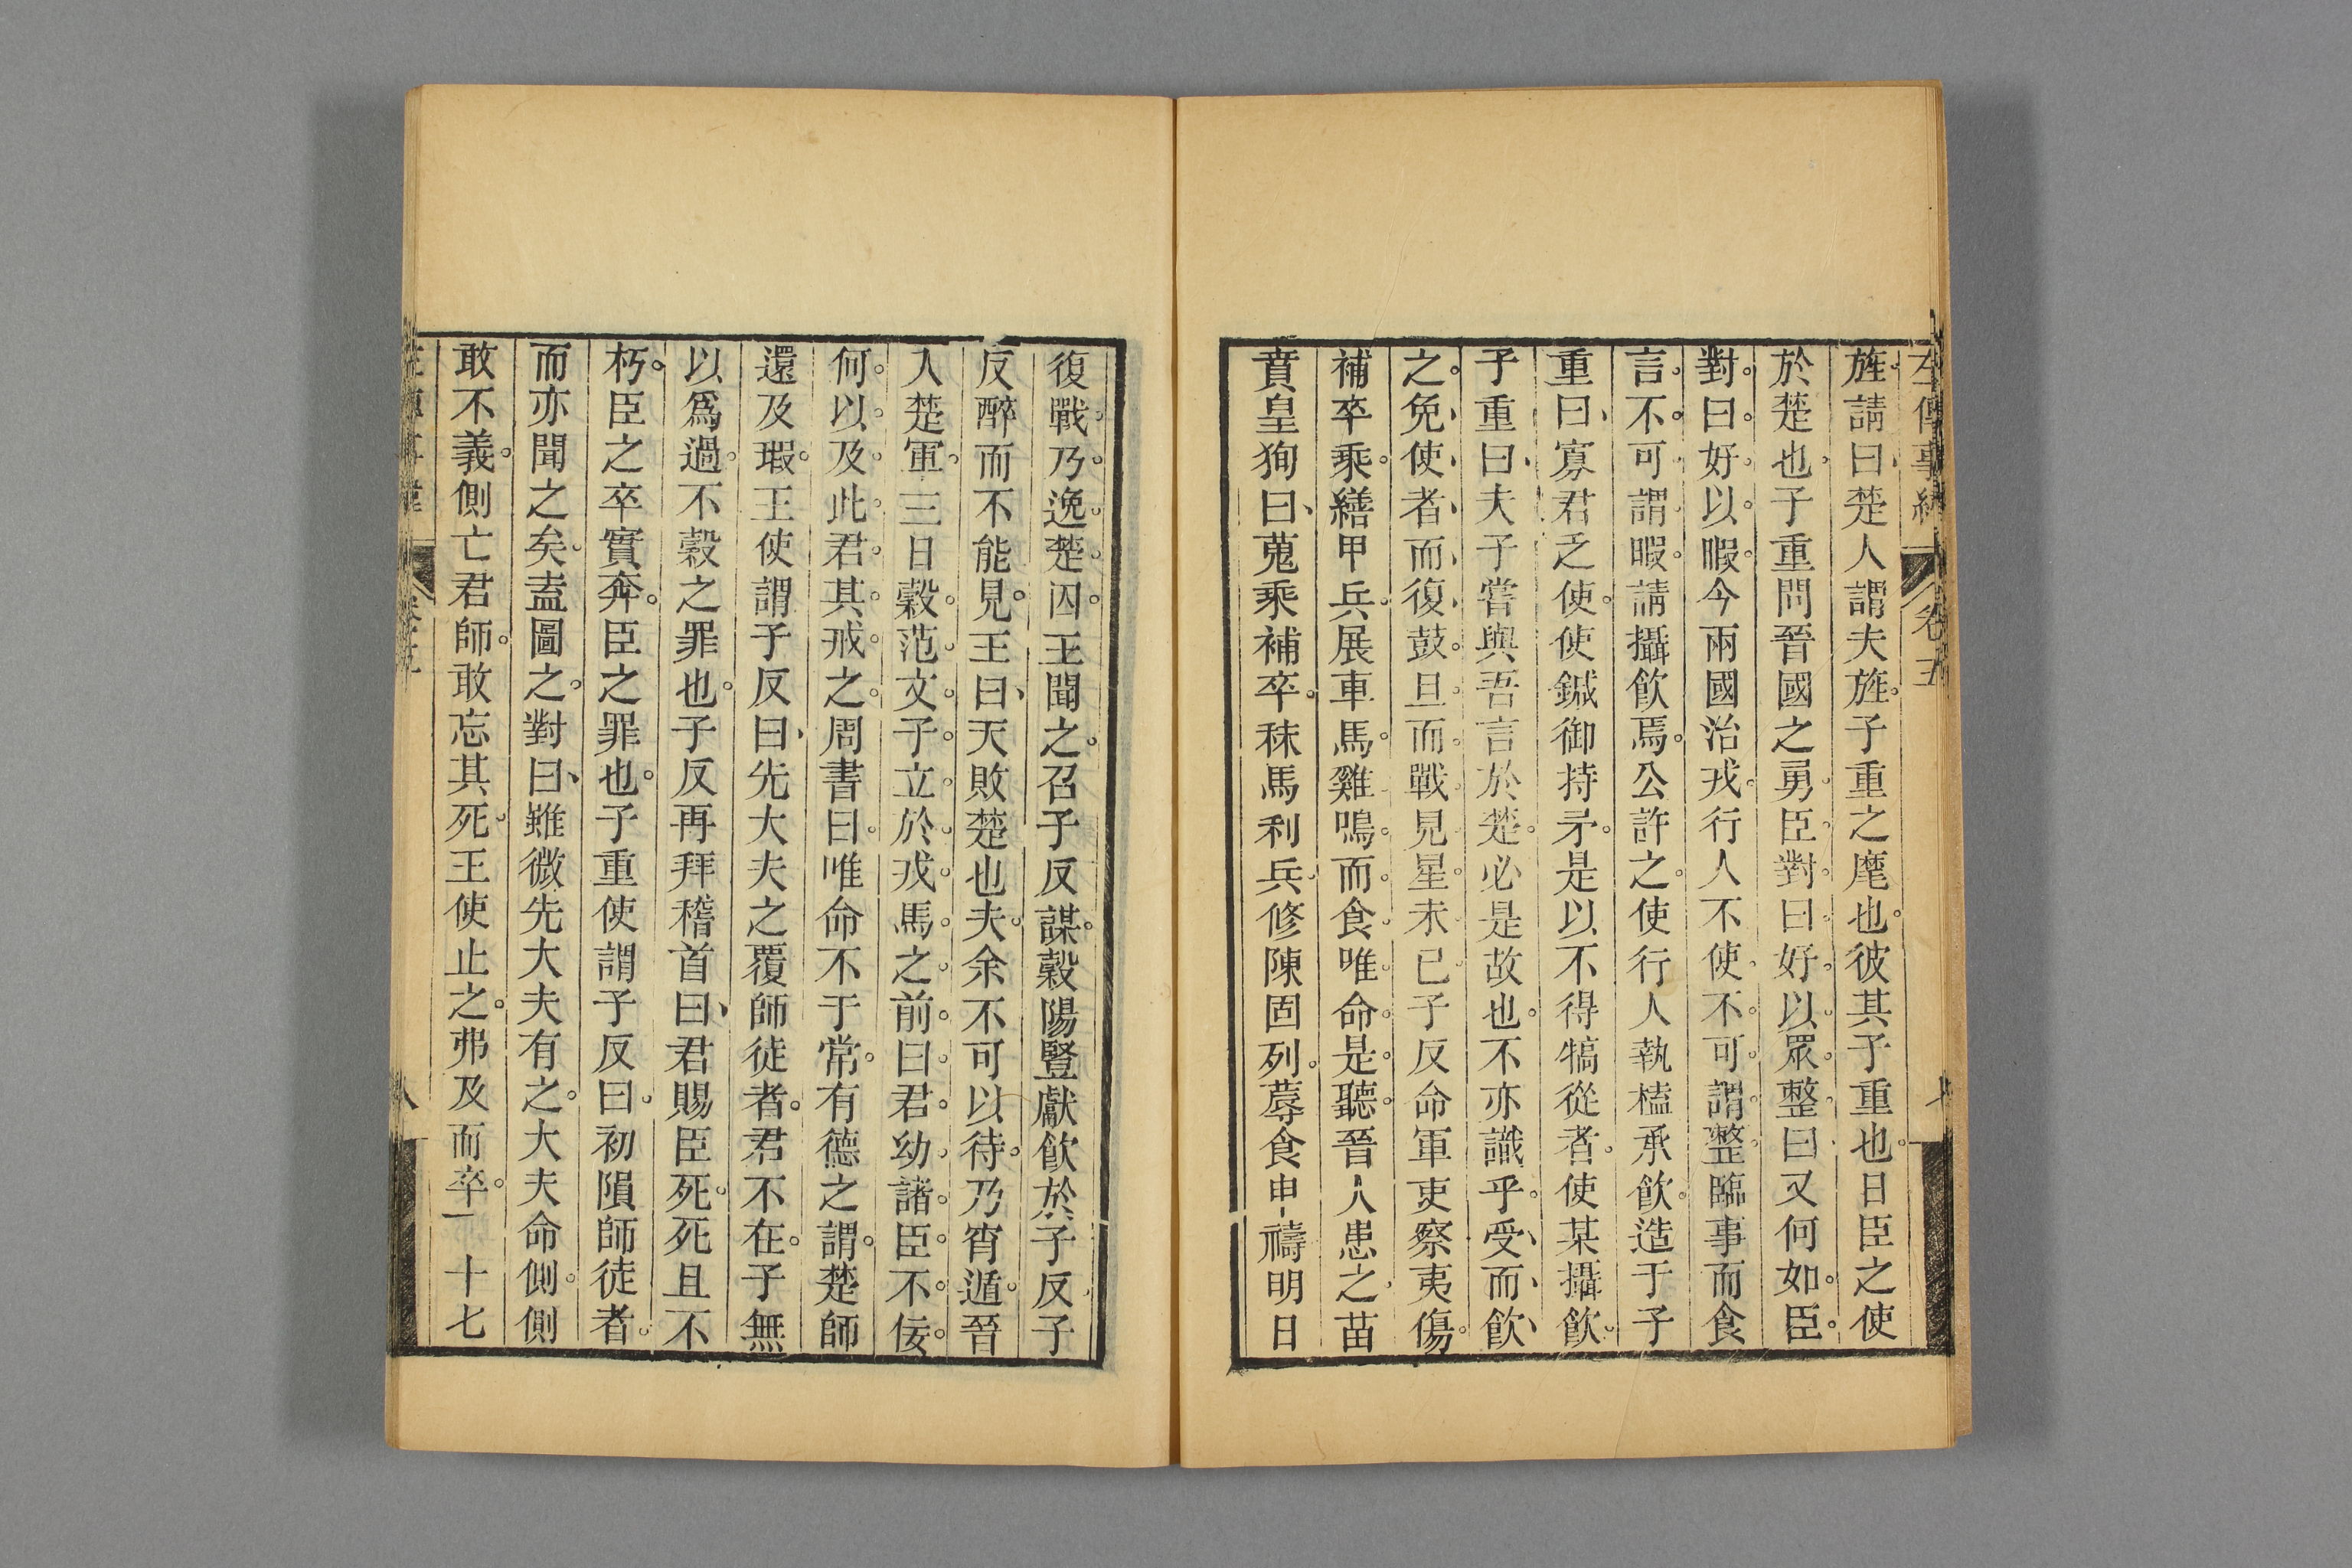 左傳事緯 卷五
旌請曰楚人謂夫旌子重之麾也彼其子重也日臣之使
於楚也子重問晉國之勇臣對曰好以眾整曰又何如臣
對曰好以暇今兩國治戎行人不使不可謂整臨事而食
言不可謂暇請攝飲焉公許之使行人執榼承飲造于子
重曰寡君乏使使鍼御持矛是以不得犒從者使某攝飲
子重曰夫子嘗與吾言於楚必是故也不亦識乎受而飲
之免使者而復鼓旦而戰見星未已子反命軍吏察夷傷
補卒乘繕甲兵展車馬雞鳴而食唯命是聽晉人患之苗
賁皇狥曰蒐乘補卒秣馬利兵修陳固列蓐食申禱明日
復戰乃逸楚囚王聞之召子反謀穀陽豎獻飲於子反子
反醉而不能見王曰天敗楚也夫余不可以待乃宵遁晉
入楚軍三日穀范文子立於戎馬之前曰君幼諸臣不佞
何以及此君其戒之周書曰唯命不于常有德之謂楚師
還及瑕王使謂子反曰先大夫之覆師徒者君不在子無
以爲過不穀之罪也子反再拜稽首曰君賜臣死死且不
朽臣之卒實奔臣之罪也子重使謂子反曰初隕師徒者
而亦聞之矣盍圖之對曰雖微先大夫有之大夫命側側
敢不義側亡君師敢忘其死王使止之弗及而卒 十七
八